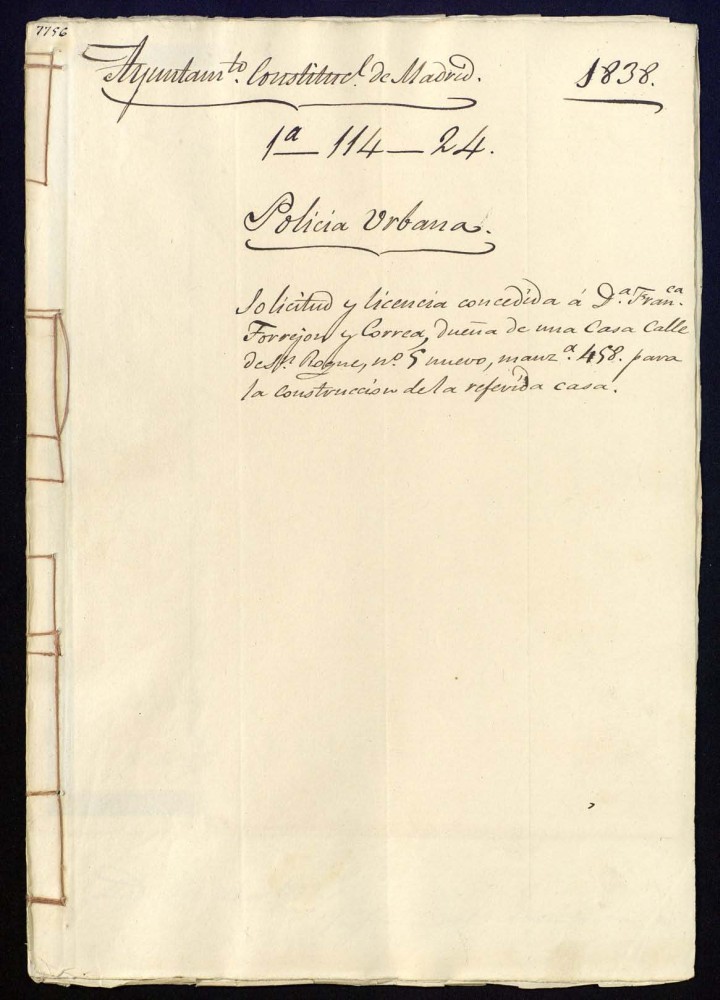 7756
Ayuntamto. Constitucl. de Madrid. 1838.
1a—114—24.
Policia Urbana.
Solicitud y licencia concedida á D.a Franca.
Torrejon y Correa, dueña de una Casa Calle
de Sn Roque, no. 5 nuevo, manz.a 458. para
la construccion de la referida casa.